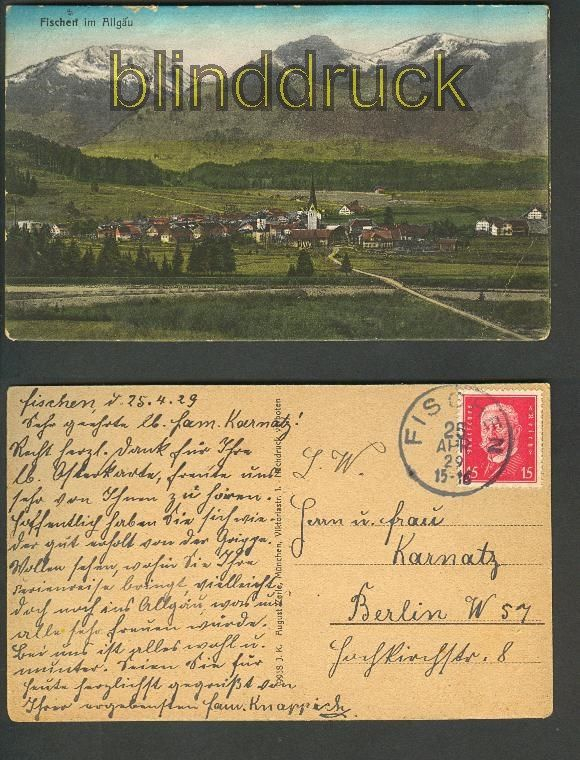 Fischen im Allgäu
blinddruck
Fischen, d. 25.4.29
Sehr geehrte lb. Fam. Karnatz!
Recht herzl. Dank für Ihre
lb. Osterkarte, freute uns
sehr von Ihnen zu hören.
Hoffentlich haben Sie sich wie-
der gut erholt von der Grippe.
Wollen sehen, wohin Sie Ihre
Ferienreise bringt, vielleicht
doch noch ins Allgäu, was uns
alle sehr freuen würde.
Bei uns ist alles wohl u.
munter. Seien Sie für
heute herzlichst gegrüßt von
Ihrer ergebensten Fam. Knappich.
J. K. August Zerle, München, Viktoriastr. 1. Nachdruck verboten
FISC
25
APR
29
15-16
15 15
S. W.
Herrn u. Frau
Karnatz
Berlin W 57
Hochkirchstr. 8